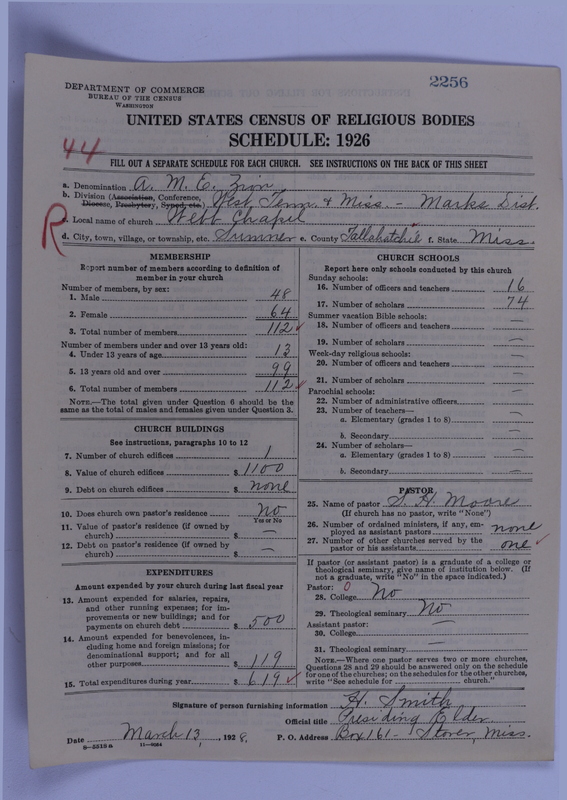 2256
DEPARTMENT OF COMMERCE
BUREAU OF THE CENSUS
WASHINGTON
UNITED STATES CENSUS OF RELIGIOUS BODIES
SCHEDULE: 1926
44
FILL OUT A SEPARATE SCHEDULE FOR EACH CHURCH. SEE INSTRUCTIONS ON THE BACK OF THIS SHEET
a. Denomination A. M. E. Zion
b. Division (Association, Conference, Diocese, Presbytery, Synod, etc.) West Tenn. & Miss. - Marks Dist.
R
c. Local name of church Webb Chapel
d. City, town, village, or township, etc. Sumner e. County Tallahatchie f. State Miss.
MEMBERSHIP
Report number of members according to definition of
member in your church
Number of members, by sex:
1. Male 48
2. Female 64
3. Total number of members 112
Number of members under and over 13 years old:
4. Under 13 years of age 13
5. 13 years old and over 99
6. Total number of members 112
NOTE.—The total given under Question 6 should be the
same as the total of males and females given under Question 3.
CHURCH BUILDINGS
See instructions, paragraphs 10 to 12
7. Number of church edifices 1
8. Value of church edifices $ 1100
9. Debt on church edifices $ none
10. Does church own pastor's residence No
Yes or No
11. Value of pastor's residence (if owned by
church) $ —
12. Debt on pastor's residence (if owned by
church) $ —
EXPENDITURES
Amount expended by your church during last fiscal year
13. Amount expended for salaries, repairs,
and other running expenses; for im-
provements or new buildings; and for
payments on church debt $ 500
14. Amount expended for benevolences, in-
cluding home and foreign missions; for
denominational support; and for all
other purposes $ 119
15. Total expenditures during year $ 619
CHURCH SCHOOLS
Report here only schools conducted by this church
Sunday schools:
16. Number of officers and teachers 16
17. Number of scholars 74
Summer vacation Bible schools:
18. Number of officers and teachers —
19. Number of scholars —
Week-day religious schools:
20. Number of officers and teachers —
21. Number of scholars —
Parochial schools:
22. Number of administrative officers —
23. Number of teachers—
a. Elementary (grades 1 to 8) —
b. Secondary —
24. Number of scholars—
a. Elementary (grades 1 to 8) —
b. Secondary —
PASTOR
25. Name of pastor S. H. Moore
(If church has no pastor, write "None")
26. Number of ordained ministers, if any, em-
ployed as assistant pastors none
27. Number of other churches served by the
pastor or his assistants one
If pastor (or assistant pastor) is a graduate of a college or
theological seminary, give name of institution below. (If
not a graduate, write "No" in the space indicated.)
Pastor: 0
28. College No
29. Theological seminary No
Assistant pastor: —
30. College
31. Theological seminary —
NOTE.—Where one pastor serves two or more churches,
Questions 28 and 29 should be answered only on the schedule
for one of the churches; on the schedules for the other churches,
write "See schedule for church."
Signature of person furnishing information H. Smith
Official title Presiding Elder
Date March 13, 1928. P. O. Address Box 161 - Stover, Miss.
8-5518a 11-8084